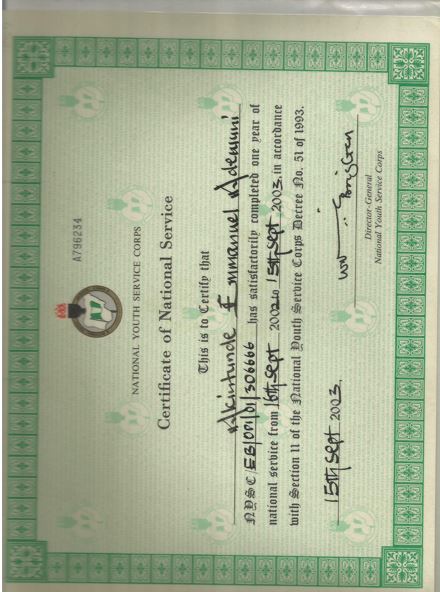 A796234
NATIONAL YOUTH SERVICE CORPS
Certificate of National Service
This is to Certify that
Akintunde Emmanuel Ademini
NYSC/EB/001/01/306666 has satisfactorily completed one year of
national service from 16th Sept 2002 to 15th Sept 2003 in accordance
with Section 11 of the National Youth Service Corps Decree No. 51 of 1993.
15th Sept 2003.
Director-General
National Youth Service Corps